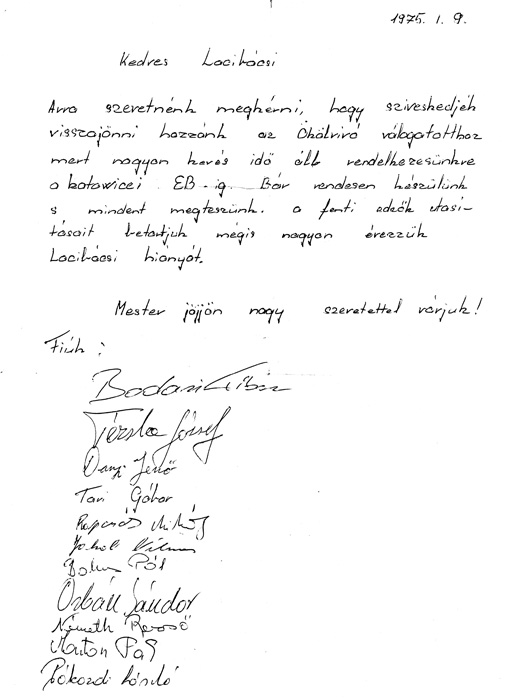 1975. 1. 9.
Kedves Lacibácsi
Arra szeretnénk megkérni, hogy sziveskedjék
visszajönni hozzánk az Ökölvivó válogatotthoz
mert nagyon kevés idő áll rendelkezésünkre
a katowicei EB-ig. Bár rendesen készülünk
s mindent megteszünk. a fenti edzők utasi-
tásait betartjuk mégis nagyon érezzük
Lacibácsi hiányát.
Mester jöjjön nagy szeretettel várjuk!
Fiúk :
Bodari Tibor
József
Jenő
Tari Gábor
Rapcsák Mihály
Vilmos
Pál
Orbán Sándor
Németh Rezső
Marton Pál
Rákozdi László